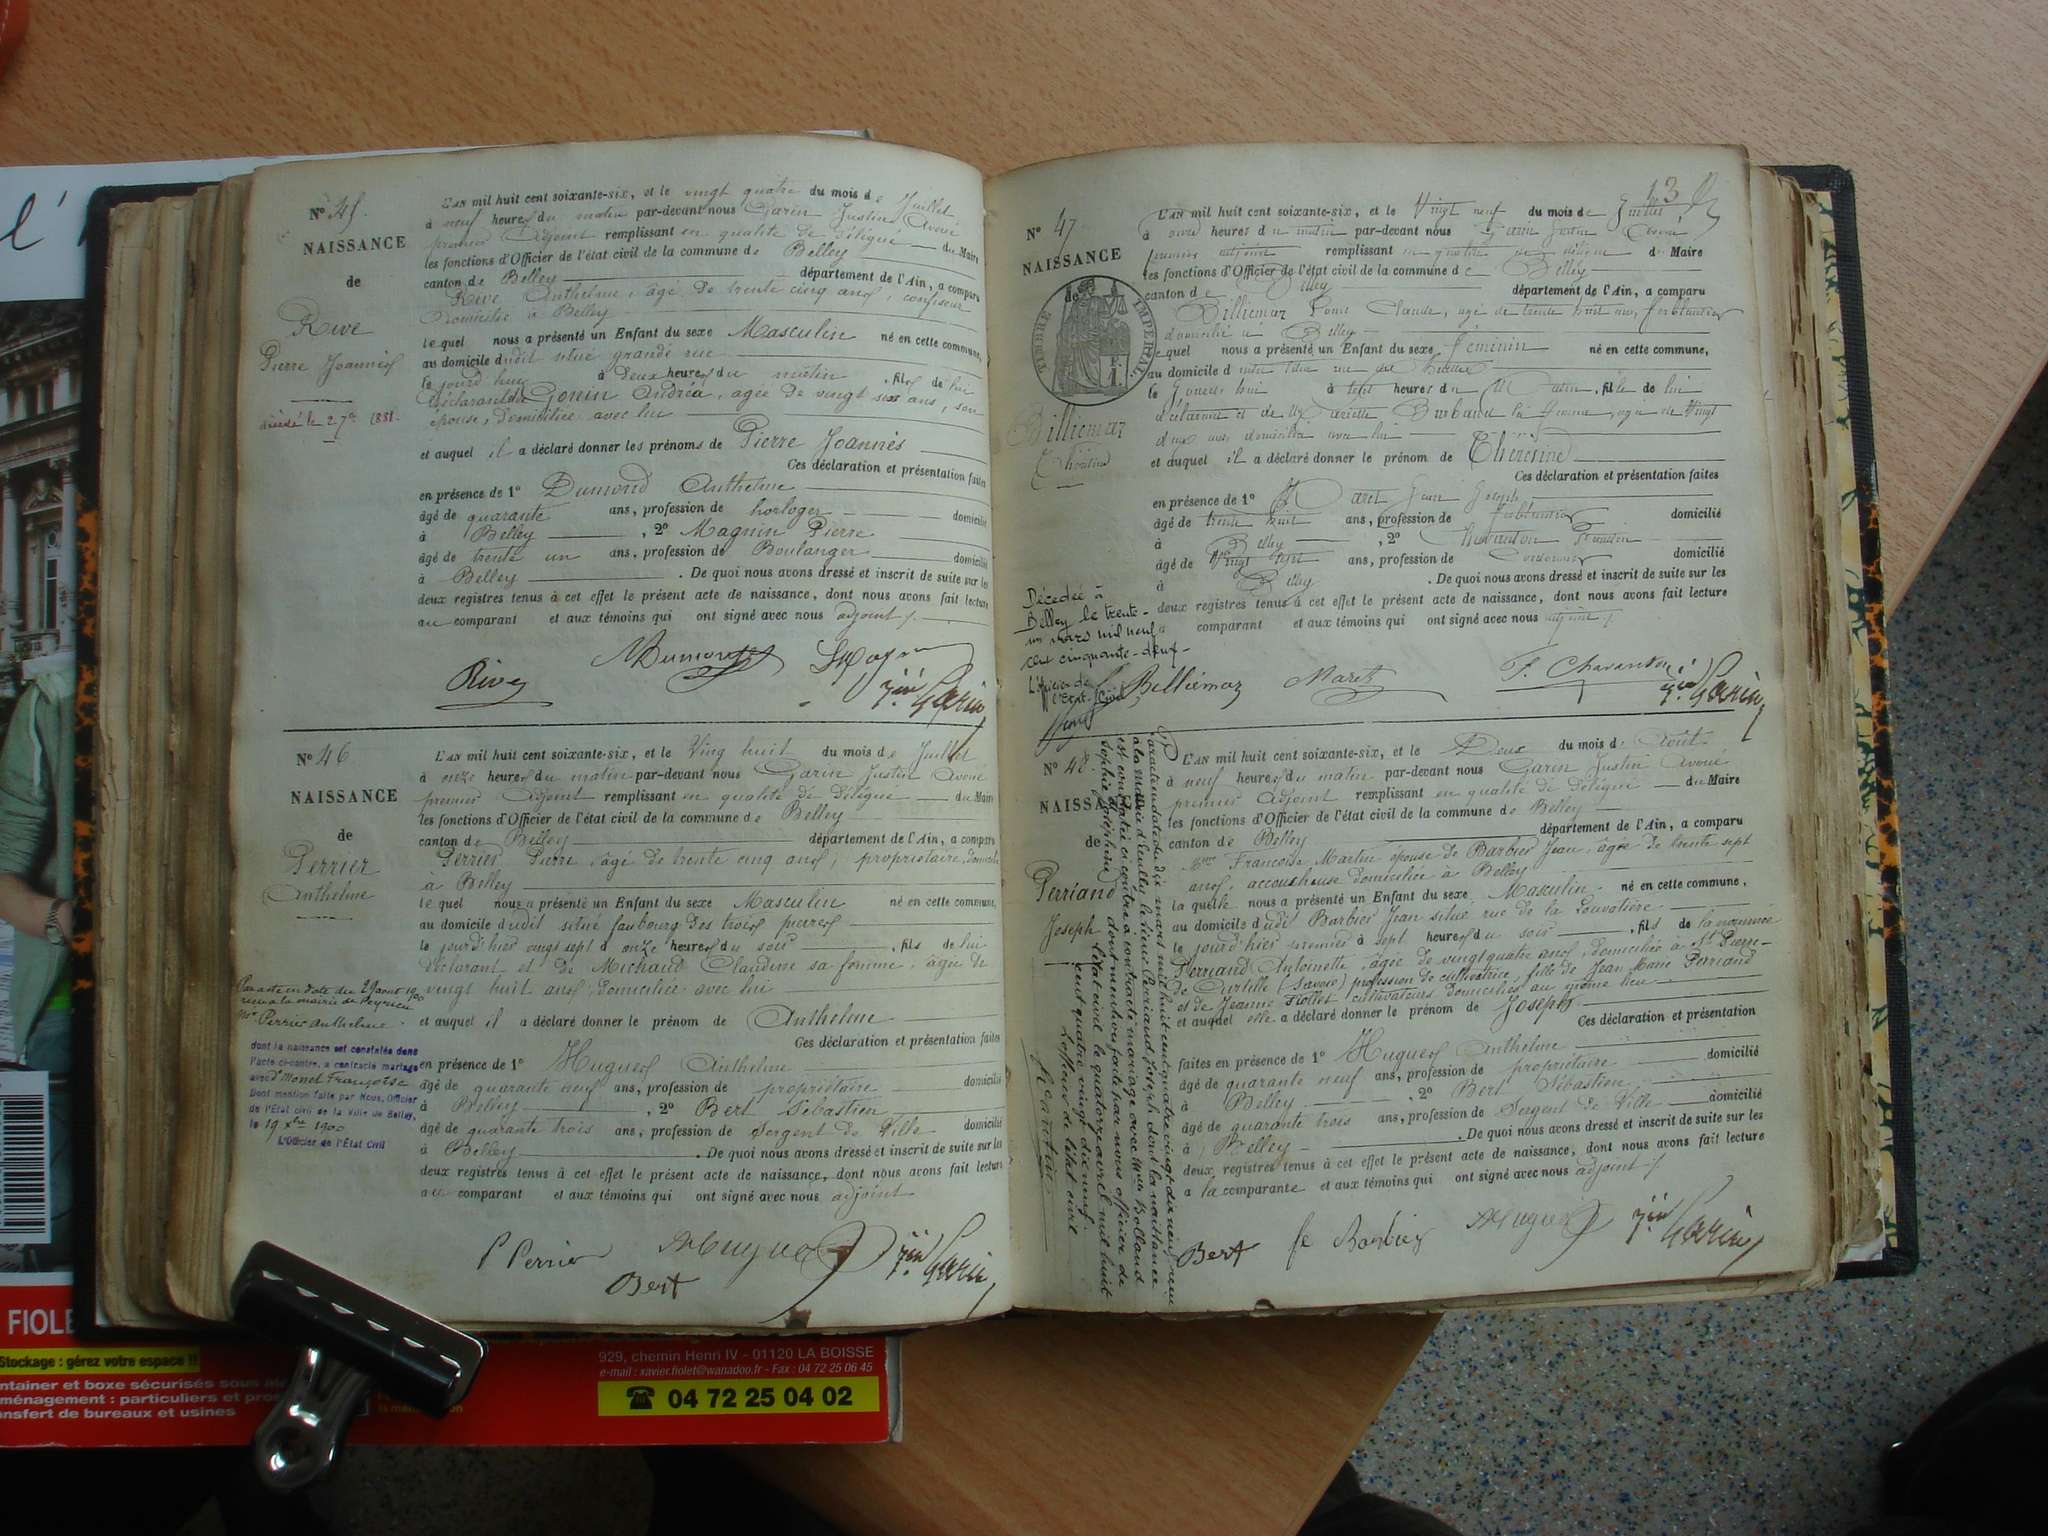 N° 45.
NAISSANCE
de
Rive
Pierre Joannès
L'AN mil huit cent soixante-six, et le vingt quatre du mois de Juillet,
à neuf heures du matin par-devant nous Garin Justin Avoué
premier Adjoint remplissant en qualité de délégué du Maire
les fonctions d'Officier de l'état civil de la commune de Belley
canton de Belley département de l'Ain, a comparu
Rive Anthelme, âgé de trente cinq ans, confiseur
domicilié à Belley
lequel nous a présenté un Enfant du sexe Masculin né en cette commune,
au domicile dudit situé grande rue
le jourd'hui à deux heures du matin, fils de lui
déclarant et de Gonin Andréa, agée de vingt six ans, son
épouse, domiciliée avec lui
et auquel il a déclaré donner les prénoms de Pierre Joannès
Ces déclaration et présentation faites
en présence de 1° Dumond Anthelme
âgé de quarante ans, profession de horloger domicilié
à Belley, 2° Magnin Pierre
âgé de trente un ans, profession de Boulanger domicilié
à Belley. De quoi nous avons dressé et inscrit de suite sur les
deux registres tenus à cet effet le présent acte de naissance, dont nous avons fait lecture
au comparant et aux témoins qui ont signé avec nous adjoint /.
Rive
Jin Garin
N° 46
NAISSANCE
de
Perrier
Anthelme
L'AN mil huit cent soixante-six, et le Ving huit du mois de Juillet
à onze heures du matin par-devant nous Garin Justin Avoué
premier Adjoint remplissant en qualité de délégué du Maire
les fonctions d'Officier de l'état civil de la commune de Belley
canton de Belley département de l'Ain, a comparu
Perrier Pierre âgé de trente cinq ans, propriétaire, domicilié
à Belley
lequel nous a présenté un Enfant du sexe Masculin né en cette commune,
au domicile dudit situé faubourg des trois pierres
le jourd'hier vingt sept à onze heures du soir, fils de lui
déclarant et de Michaud Claudine sa femme, âgée de
vingt huit ans, domiciliée avec lui
et auquel il a déclaré donner le prénom de Anthelme
Ces déclaration et présentation faites
en présence de 1° Hugues Anthelme
âgé de quarante neuf ans, profession de propriétaire domicilié
à Belley, 2° Bert Sébastien
âgé de quarante trois ans, profession de Sergent de Ville domicilié
à Belley. De quoi nous avons dressé et inscrit de suite sur les
deux registres tenus à cet effet le présent acte de naissance, dont nous avons fait lecture
au comparant et aux témoins qui ont signé avec nous adjoint
Par acte en date du 29 aout 1900
reçu à la mairie de Peyrieu
Mr Perrier Anthelme
dont la naissance est constatée dans
l'acte ci-contre, a contracté mariage
avec Monet Françoise
Dont mention faite par Nous, Officier
de l'État civil de la Ville de Belley,
le 19 Xbre 1900
L'Officier de l'État Civil
P Perrier
Bert
Jin Garin
N° 47
NAISSANCE
de
TIMBRE IMPÉRIAL
Billiemaz
L'AN mil huit cent soixante-six, et le Vingt neuf du mois de Juillet
à heures du matin par-devant nous Garin Justin Avoué
premier adjoint remplissant en qualité de délégué du Maire
les fonctions d'Officier de l'état civil de la commune de Belley
canton de Belley département de l'Ain, a comparu
Billiemaz Claude, agé de trente huit ans, ferblantier
domicilié à Belley
lequel nous a présenté un Enfant du sexe féminin né en cette commune,
au domicile
le jourd'hui à sept heures du Matin, fille de lui
déclarant et de Mariette sa femme, agée de Vingt
deux ans domiciliée avec lui
et auquel il a déclaré donner le prénom de Thérésine
Ces déclaration et présentation faites
en présence de 1° Maret Jean Joseph
âgé de trente huit ans, profession de ferblantier domicilié
à Belley, 2° Chavanton
âgé de Vingt sept ans, profession de domicilié
à Belley. De quoi nous avons dressé et inscrit de suite sur les
deux registres tenus à cet effet le présent acte de naissance, dont nous avons fait lecture
comparant et aux témoins qui ont signé avec nous adjoint /.
Décédée à
Belley le trente-
un mars mil neuf
cent cinquante-deux-
L'Officier de
l'État-Civil
Billiemaz
Maret
Jin Garin
N° 48
NAISSANCE
de
Perriand
Joseph
L'AN mil huit cent soixante-six, et le Deux du mois de Aout
à neuf heures du matin, par-devant nous Garin Justin Avoué
premier Adjoint remplissant en qualité de délégué du Maire
les fonctions d'Officier de l'état civil de la commune de Belley
canton de Belley département de l'Ain, a comparu
Françoise Martin épouse de Barbier Jean, âgée de trente sept
ans, accoucheuse domiciliée à Belley
laquelle nous a présenté un Enfant du sexe Masculin né en cette commune,
au domicile dudit Barbier Jean situé rue de la Louvatière
le jourd'hier premier à sept heures du soir, fils de la nommée
Perriand Antoinette, âgée de vingt quatre ans, domiciliée à St Pierre-
de Curtille (Savoie) profession de cultivatrice, fille de Jean Marie Perriand
et de Jeanne Fiollet cultivateurs domiciliés au même lieu
et auquel elle a déclaré donner le prénom de Joseph
Ces déclaration et présentation
faites en présence de 1° Hugues Anthelme
âgé de quarante neuf ans, profession de propriétaire domicilié
à Belley, 2° Bert Sébastien
âgé de quarante trois ans, profession de Sergent de Ville domicilié
à Belley. De quoi nous avons dressé et inscrit de suite sur les
deux registres tenus à cet effet le présent acte de naissance, dont nous avons fait lecture
à la comparante et aux témoins qui ont signé avec nous adjoint /.
Par acte en date du dix mars mil huit cent quatre vingt dix neuf reçu
à la mairie le sieur Perriand Joseph dont la naissance
est constatée ci contre a contracté mariage avec Melle Bolland
Sophie Joséphine dont mention faite par nous officier de
l'état civil le quatorze avril mil huit
cent quatre vingt dix neuf.
L'officier de l'état civil
Bert
fe Barbier
Jin Garin
FIOLE
Stockage : gérez votre espace !!
929, chemin Henri IV - 01120 LA BOISSE
e-mail : xavier.fiolet@wanadoo.fr - Fax : 04 72 25 06 45
04 72 25 04 02